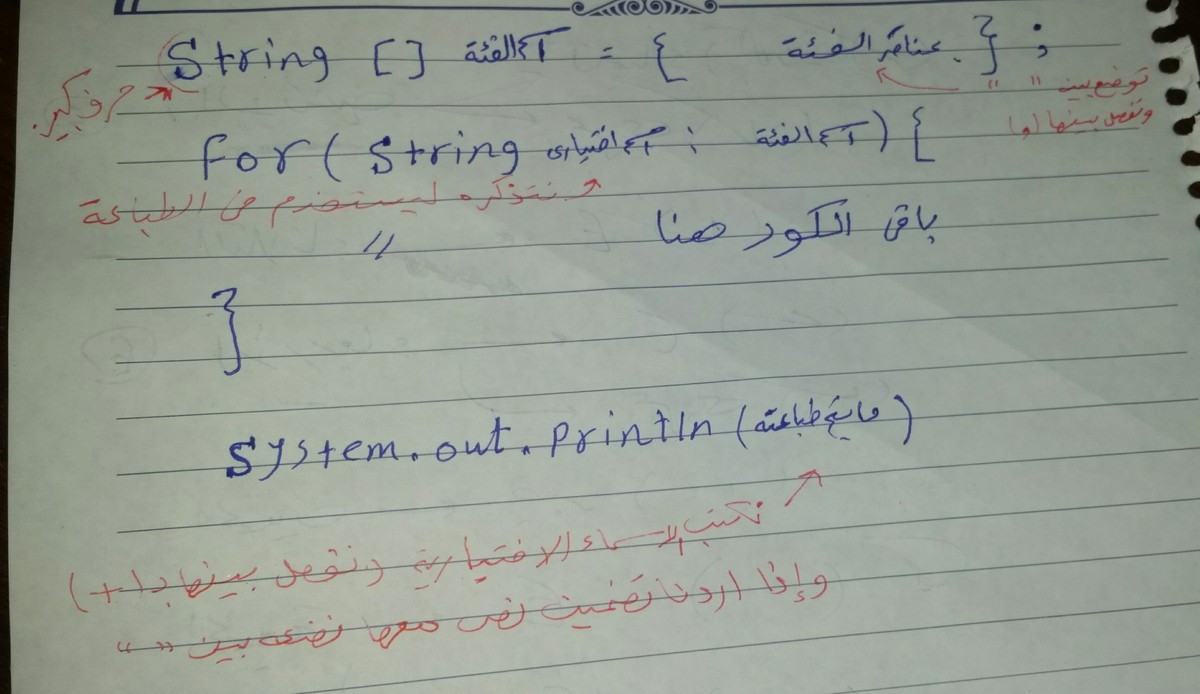 String [] اسم الفئة = { عناصر الفئة } ;
توضع بين " "
ونفصل بينها بـ(،)
حرف كبير
for ( String اسم اختيارى : اسم الفئة ) {
نتذكره ليستخدم فى الطباعة
باقى الكود هنا
//
}
System.out.println ( مايتم طباعته )
نكتب الاسماء الاختيارية ونفصل بينها بـ(+)
وإذا اردنا تضمين نص معها نضعه بين " "